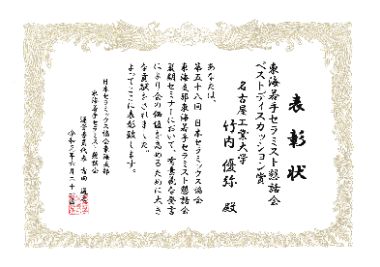 表彰状
東海若手セラミスト懇話会
ベストディスカッション賞
名古屋工業大学
竹内 優弥 殿
あなたは、
第五十八回 日本セラミックス協会
東海支部東海若手セラミスト懇話会
夏期セミナーにおいて、有意義な発言
により会の価値を高めるために大き
な貢献をされました。
よってここに表彰致します。
日本セラミックス協会東海支部
東海若手セラミスト懇話会
運営委員代表